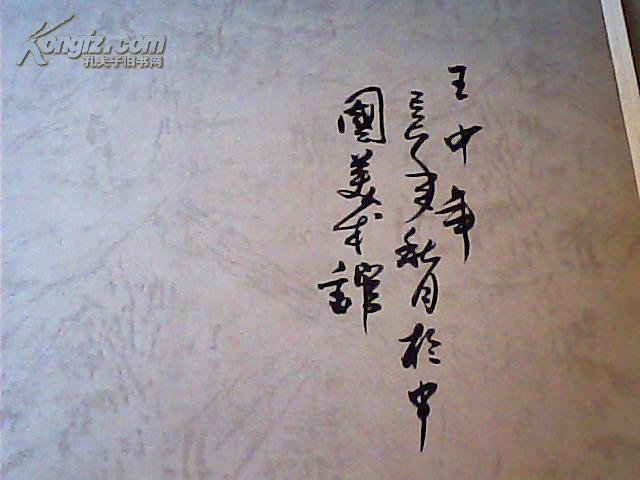 Kongfz.com
孔夫子旧书网
王中年
秋月於中
國美术舘